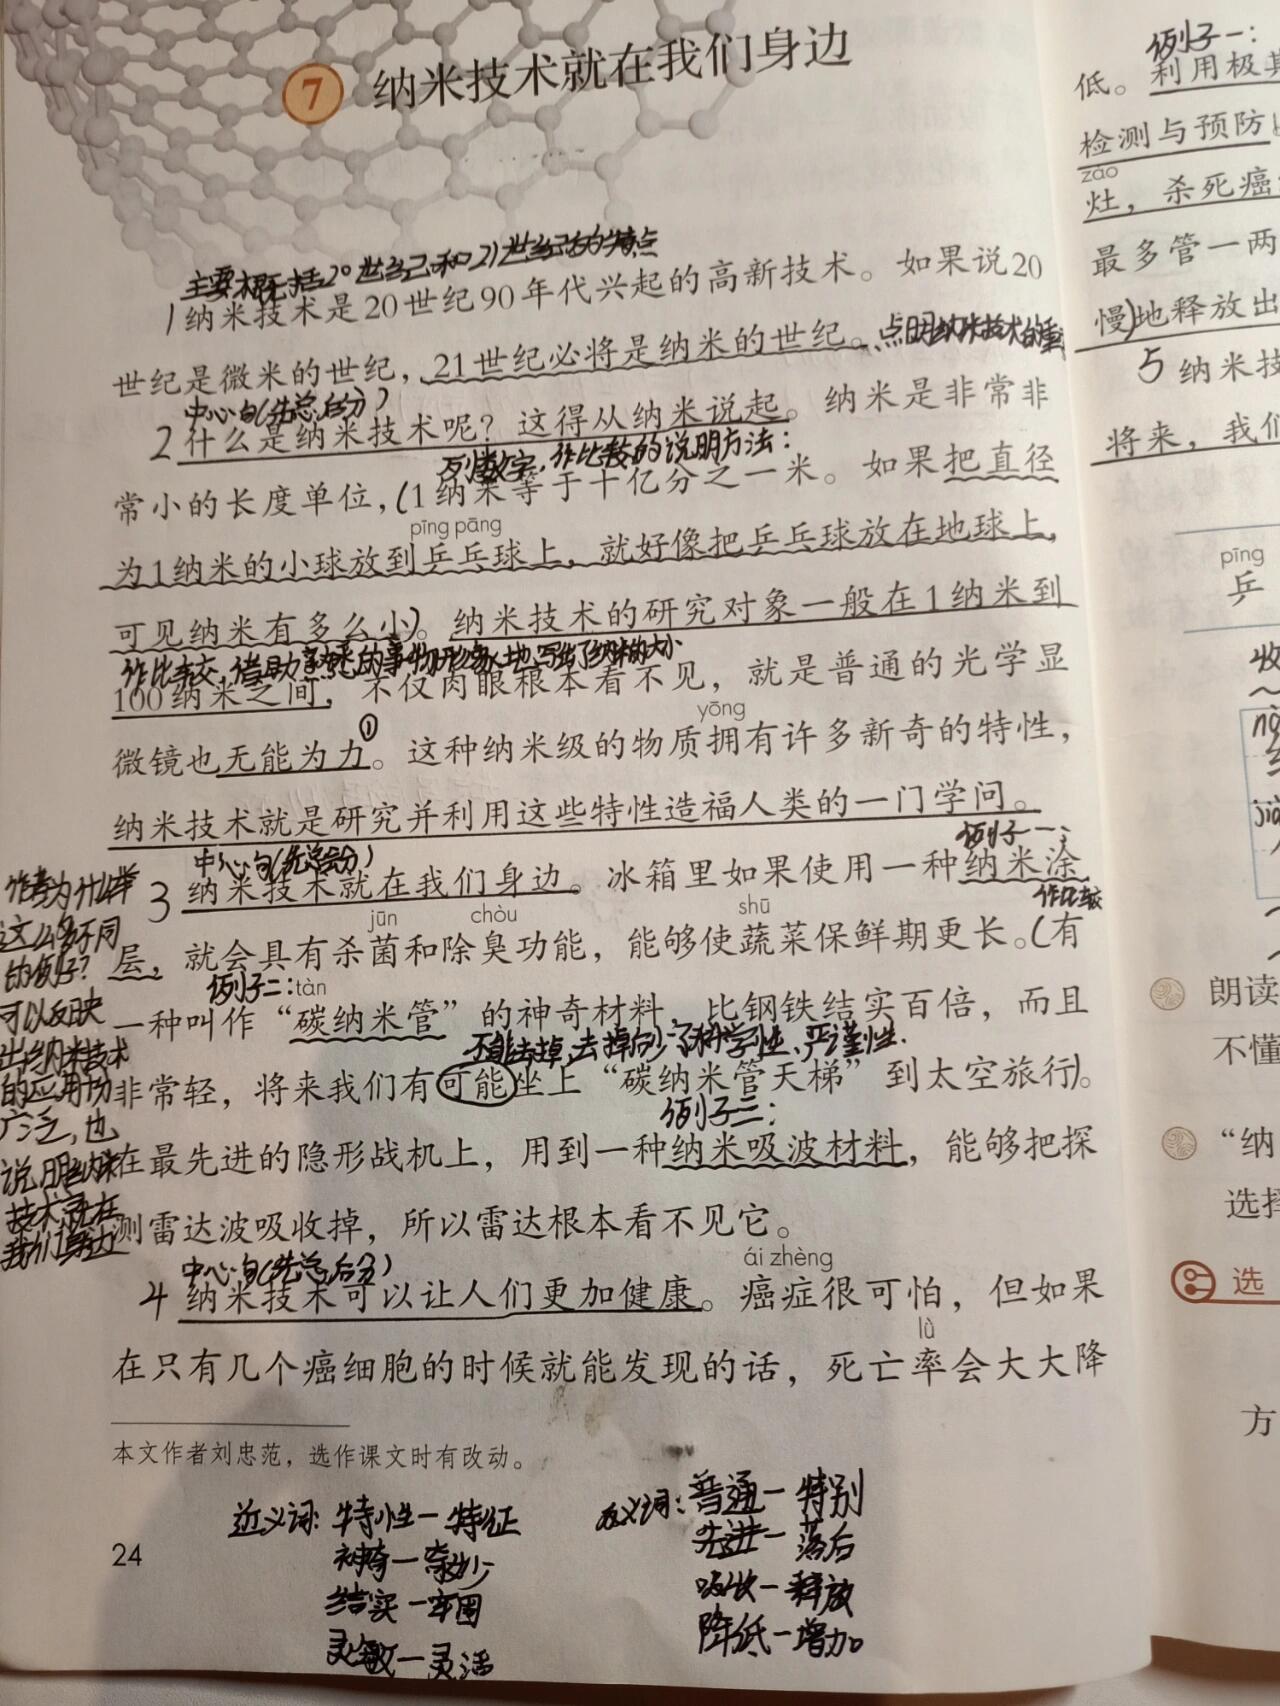 7 纳米技术就在我们身边
主要概括20世纪和21世纪的特点
1 纳米技术是20世纪90年代兴起的高新技术。如果说20
世纪是微米的世纪，21世纪必将是纳米的世纪。
点明纳米技术的重
中心句(先总后分)
2 什么是纳米技术呢？这得从纳米说起。纳米是非常非
列数字,作比较的说明方法:
常小的长度单位，(1纳米等于十亿分之一米。如果把直径
pīng pāng
为1纳米的小球放到乒乓球上，就好像把乒乓球放在地球上，
可见纳米有多么小)。纳米技术的研究对象一般在1纳米到
作比较,借助熟悉的事物形象地写出了纳米的大小
100纳米之间，不仅肉眼根本看不见，就是普通的光学显
yōng
微镜也无能为力①。这种纳米级的物质拥有许多新奇的特性，
纳米技术就是研究并利用这些特性造福人类的一门学问。
中心句(先总后分)
例子一:
3 纳米技术就在我们身边。冰箱里如果使用一种纳米涂
作比较
jūn chòu shū
层，就会具有杀菌和除臭功能，能够使蔬菜保鲜期更长。(有
例子二: tàn
一种叫作“碳纳米管”的神奇材料，比钢铁结实百倍，而且
不能去掉,去掉后少了科学性、严谨性.
非常轻，将来我们有可能坐上“碳纳米管天梯”到太空旅行)。
例子三:
在最先进的隐形战机上，用到一种纳米吸波材料，能够把探
测雷达波吸收掉，所以雷达根本看不见它。
中心句(先总后分)
ái zhèng
4 纳米技术可以让人们更加健康。癌症很可怕，但如果
lǜ
在只有几个癌细胞的时候就能发现的话，死亡率会大大降
作者为什么举
这么多不同
的例子?
可以反映
出纳米技术
的应用
广泛,也
说明纳米
技术就在
我们身边
本文作者刘忠范，选作课文时有改动。
近义词: 特性一特征
神奇一奇妙
结实一牢固
灵敏一灵活
反义词: 普通一特别
先进一落后
吸收一释放
降低一增加
24
例子一:
低。利用极其
检测与预防
zāo
灶，杀死癌
最多管一两
慢)地释放出
5 纳米技
将来，我们
pīng
乒
朗读
不懂
“纳
选择
选
方